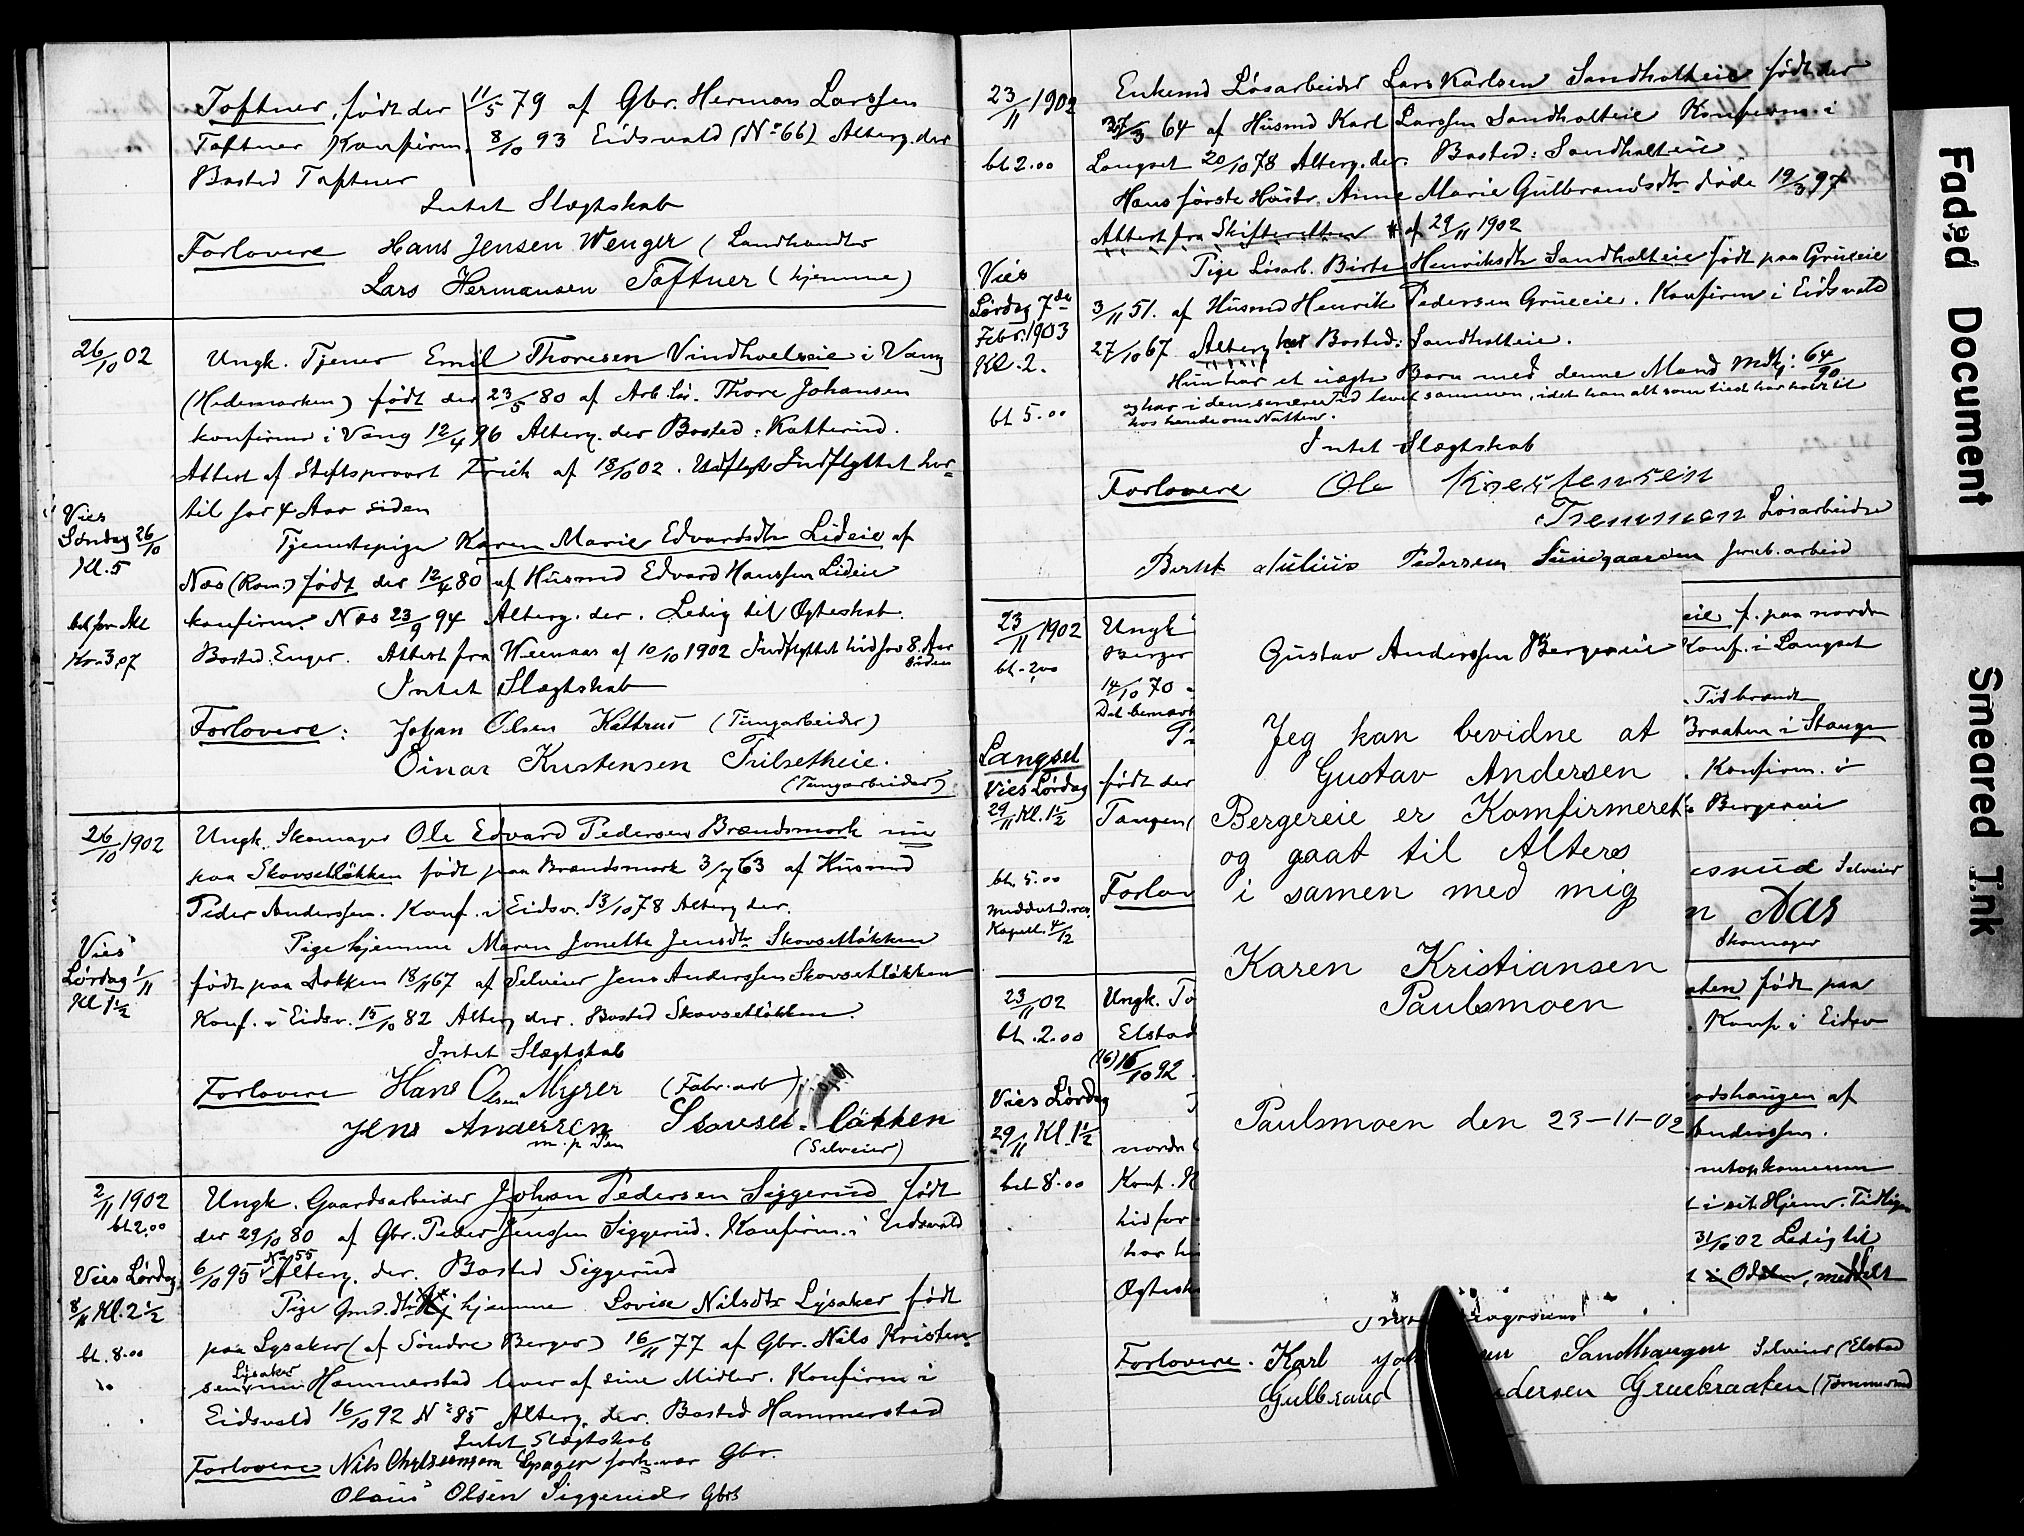 Toftner, født der 11/5 79 af Gbr. Herman Larssen
Toftner Konfirm. 8/10 93 Eidsvold (No 66) Alterg. der
Bosted Toftner
Intet Slægtskab
Forlovere Hans Jensen Wenger (Landhandler
Lars Hermansen Toftner (hjemme)
26/10 02
Ungk. Tjener Emil Thoresen Vindhvelseie i Vang
(Hedemarken) født der 23/5 80 af Arb. Thore Johansen
konfirm i Vang 12/4 96 Alterg. der Bosted: Katterud.
Attest af Stiftsprovst af 18/10 02. Indflyttet her=
til for 4 Aar siden
Vies
Søndag 26/10
Kl. 5
Tjenestepige Karen Marie Edvardsdtr Lideie af
Næs (Rom.) født der 12/4 80 af Husmd Edvard Hanssen Lideie
bet for Akl
konfirm. Næs 23/9 94 Alterg. der. Ledig til Ægteskab.
Kr. 3,07
Bosted. Enger. Attest fra af 10/10 1902 Indflyttet hid for 8 Aar
siden
Intet Slægtskab
Forlovere: Johan Olsen Kattrud (Tømgarbeider)
Einar Kristensen Trilsetheie.
26/10 1902
Ungk. Skomager Ole Edvard Pedersen Brændsmork nu
paa Skovsetløkken født paa Brændsmork 3/7 63 af Husmd
Peder Anderssen. Konf. i Eidsv. 13/10 78 Alterg der.
Pige hjemme Maren Jonette Jensdtr Skovsetløkken
Vies
Lørdag 1/11
Kl 1 1/2
født paa Dokken 18/11 67 af Selveier Jens Anderssen Skovsetløkken
Konf. i Eidsv. 15/10 82 Alterg der. Bosted Skovsetløkken.
Intet Slægtskab
Forlovere Hans Olsen Myrer (Fabr. arb)
Jens Andersen Skovset. løkken
m. p. Pen (Selveier)
2/11 1902
bt 2.00
Ungk. Gaardsarbeider Johan Pedersen Siggerud født
der 29/10 80 af Gbr. Peder Jenssen Siggerud. Konfirm. i Eidsvold
6/10 95 No 55 Alterg. der. Bosted Siggerud
Vies Lørdag
8/11 Kl. 2 1/2
bt. 8.00
Pige hjemme Lovise Nilsdtr Lysaker født
paa Lysaker (af Søndre Berger) 16/11 77 af Gbr. Nils Kristen=
sen Lysaker Hammerstad lever af sine Midler. Konfirm i
Eidsvold 16/10 92 No 85 Alterg. der. Bosted Hammerstad
Intet Slægtskab
Forlovere Nils Christensen forh. var Gbr.
Olaus Olsen Siggerud Gbr
23/11 1902
bt 2.00
Enkemd Løsarbeider Lars Karlsen Sandholteie født der
64 af Husmd Karl Larssen Sandholteie Konfirm. i
Langset 20/10 78 Alterg. der. Bosted: Sandholteie
Hans første Hustr. Anne Marie Gulbrandsdtr døde 19/3 97
Attest fra Skifteretten af 29/11 1902
Vies
Lørdag 7de
Febr. 1903
Kl. 2.
bt 5.00
Pige Løsarb. Birte Henriksdtr Sandholteie født paa Grueeie
3/11 51. af Husmd Henrik Pedersen Grueeie. Konfirm i Eidsvold
27/10 67 Alterg her Bosted: Sandholteie.
Hun har et uægte Barn med denne Mand
og har i den senere Tid levet sammen, idet han alt som tiest har holdt til
hos hende om Natten.
Intet Slægtskab
Forlovere Ole Kristensen
Tremmen Løsarbeider
Bernt Julius Pedersen Sundgaarden Jernb. arbeid
23/11 1902
bt. 2,00
Ungk
Berger
14/10 70
Det bemærk
eie f. paa nordre
Konf. i Langset
Tidbrændt
Braaten i Stange
Langset
Vies Lørdag
29/11 Kl. 1 1/2
født der
Tangen
Konfirm. i
Bergereie
bt. 5.00
Meddelt d. res
Kapell. 4/12
Forlov
Selveier
Aas
Skomager
Gustav Anderssen Bergereie
Jeg kan bevidne at
Gustav Andersen
Bergereie er Komfirmeret
og gaat til Alters
i samen med mig
Karen Kristiansen
Paulsmoen
Paulsmoen den 23-11-02
23/11 02
bt. 2.00
Ungk.
Elstad
(16) 16/10 92
aten født paa
Konf i Eidsv
Vies Lørdag
29/11 Kl. 1 1/2
bet 8.00
nordre
Konf.
hid for
har
Ægtesk
odshaugen af
Anderssen.
netop kommen
t i sit Hjem. Tidligere
31/10 02 Ledig til
meddelt
Forlovere. Karl Sandhaugen Selveier (Elstad
Gulbrand Pedersen Gruebraaten (Tømmermd
Faded Document
Smeared Ink